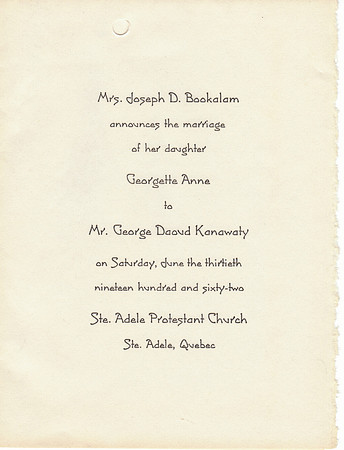 Mrs. Joseph D. Bookalam
announces the marriage
of her daughter
Georgette Anne
to
Mr. George Daoud Kanawaty
on Saturday, June the thirtieth
nineteen hundred and sixty-two
Ste. Adele Protestant Church
Ste. Adele, Quebec